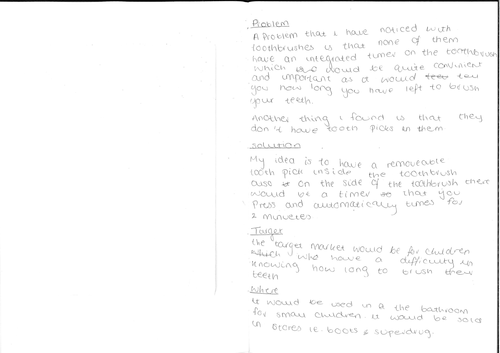 Problem
A Problem that i have noticed with
toothbrushes is that none of them
have an integrated timer on the toothbrush
which would be quite convinient
and important as it would tell
you how long you have left to brush
your teeth.
Another thing i found is that they
don't have tooth picks in them
Solution
My idea is to have a removeable
tooth pick inside the toothbrush
on the side of the toothbrush there
would be a timer that you
Press and automatically times for
2 minuetes
Target
the target market would be for children
who have a difficulty in
knowing how long to brush their
teeth
Where
it would be used in the bathroom
for small children. it would be sold
in stores ie. boots & superdrug.